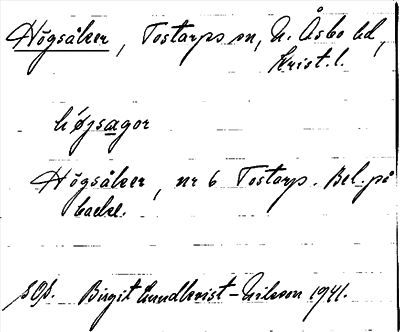 Högsåker, Tostarps sn, N. Åsbo hd,
Krist. l.
högsagor
Högsåker, nr 6 Tostarp. Bel. på
backe.
SOS. Birgit Lundkvist-Nilsson 1941.